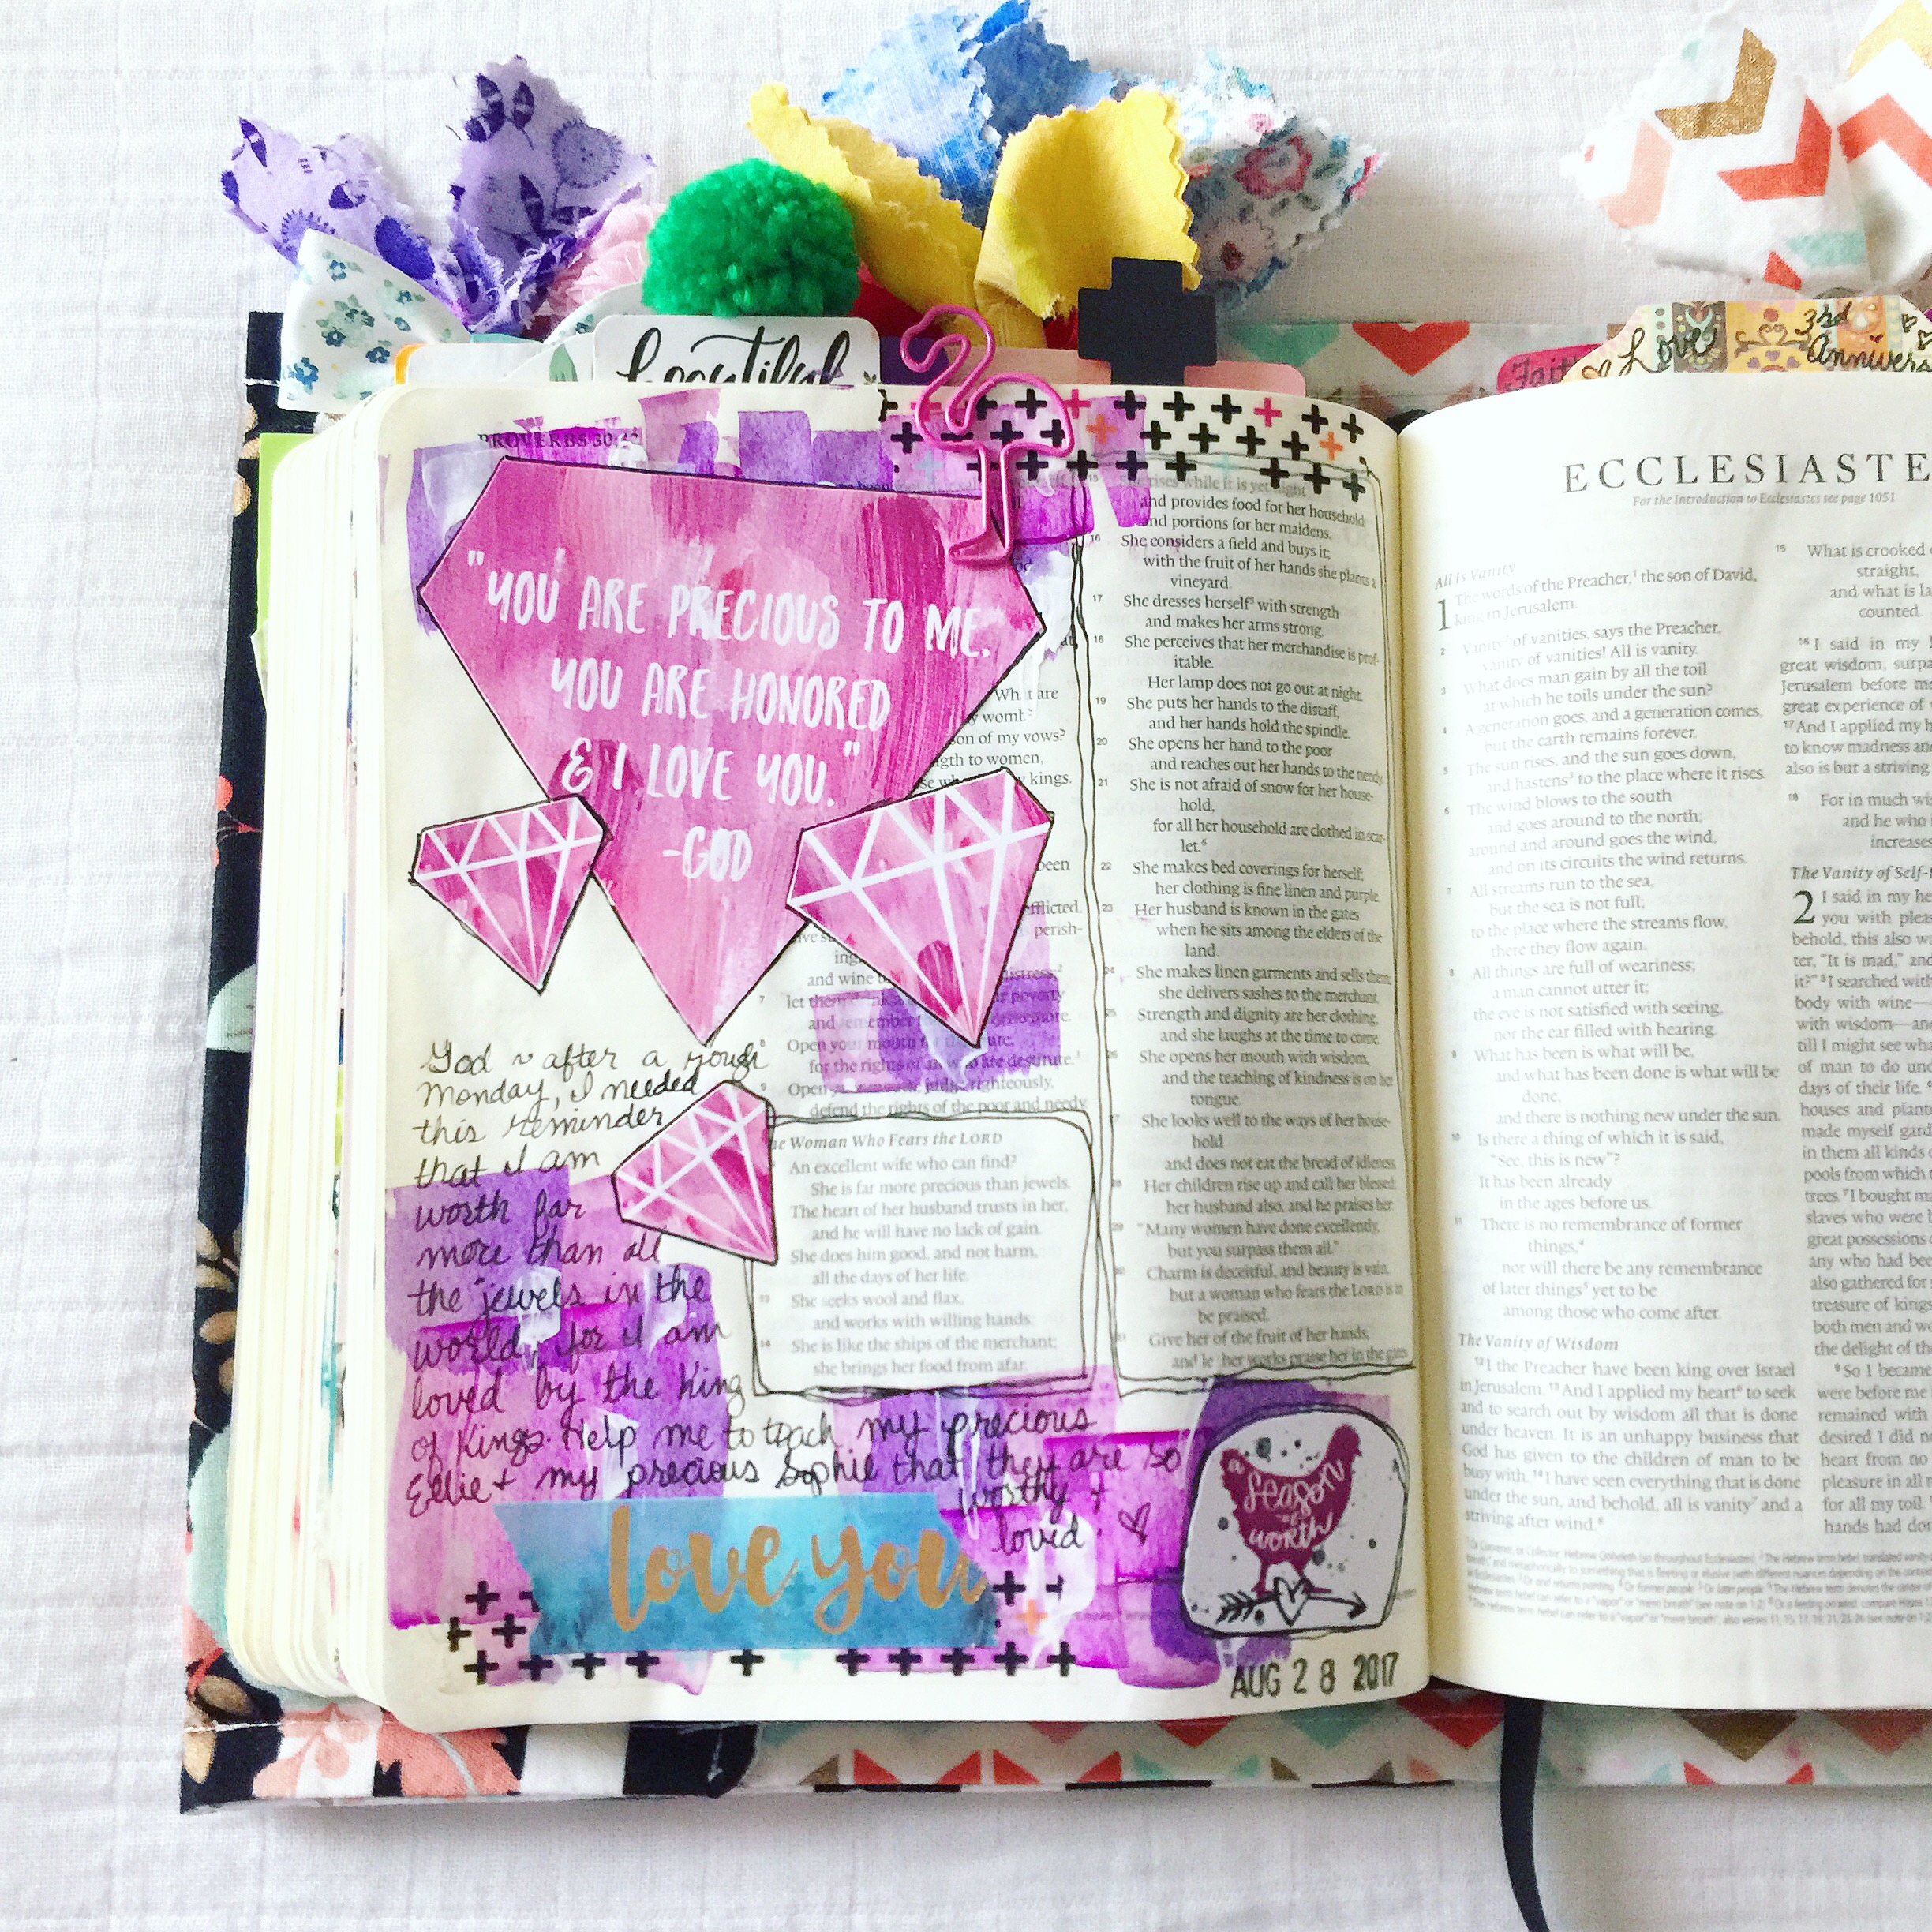 beautiful
Faith
Love
3rd
PROVERBS 30:
"YOU ARE PRECIOUS TO ME.
YOU ARE HONORED
& I LOVE YOU."
-GOD
God ~ after a rough
Monday, I needed
this reminder
that I am
worth far
more than all
the jewels in the
world, for I am
loved by the King
of Kings. Help me to teach my precious
Ellie + my precious Sophie that they are so
worthy +
loved
love you
What are
womb
son of my vows?
to women,
kings.
been
perish-
and wine
7 let them
and remember more.
Open your mouth for the
for the rights of all who are destitute.
9 Open righteously,
defend the rights of the poor and needy.
The Woman Who Fears the LORD
An excellent wife who can find?
She is far more precious than jewels.
The heart of her husband trusts in her,
and he will have no lack of gain.
She does him good, and not harm,
all the days of her life.
13 She seeks wool and flax,
and works with willing hands.
14 She is like the ships of the merchant;
she brings her food from afar.
15 She rises while it is yet night
and provides food for her household
and portions for her maidens.
16 She considers a field and buys it;
with the fruit of her hands she plants a
vineyard.
17 She dresses herself with strength
and makes her arms strong.
18 She perceives that her merchandise is prof-
itable.
Her lamp does not go out at night.
19 She puts her hands to the distaff,
and her hands hold the spindle.
20 She opens her hand to the poor
and reaches out her hands to the needy.
21 She is not afraid of snow for her house-
hold,
for all her household are clothed in scar-
let.⁶
22 She makes bed coverings for herself;
her clothing is fine linen and purple.
23 Her husband is known in the gates
when he sits among the elders of the
land.
24 She makes linen garments and sells them;
she delivers sashes to the merchant.
25 Strength and dignity are her clothing,
and she laughs at the time to come.
26 She opens her mouth with wisdom,
and the teaching of kindness is on her
tongue.
27 She looks well to the ways of her house-
hold
and does not eat the bread of idleness.
28 Her children rise up and call her blessed;
her husband also, and he praises her:
29 "Many women have done excellently,
but you surpass them all."
30 Charm is deceitful, and beauty is vain,
but a woman who fears the LORD is to
be praised.
31 Give her of the fruit of her hands,
and let her works praise her in the gates.
a
season
of
worth
AUG 28 2017
ECCLESIASTE
For the Introduction to Ecclesiastes see page 1051
All Is Vanity
1 The words of the Preacher,¹ the son of David,
king in Jerusalem.
2 Vanity² of vanities, says the Preacher,
vanity of vanities! All is vanity.
3 What does man gain by all the toil
at which he toils under the sun?
4 A generation goes, and a generation comes,
but the earth remains forever.
5 The sun rises, and the sun goes down,
and hastens³ to the place where it rises.
6 The wind blows to the south
and goes around to the north;
around and around goes the wind,
and on its circuits the wind returns.
7 All streams run to the sea,
but the sea is not full;
to the place where the streams flow,
there they flow again.
8 All things are full of weariness;
a man cannot utter it;
the eye is not satisfied with seeing,
nor the ear filled with hearing.
9 What has been is what will be,
and what has been done is what will be
done,
and there is nothing new under the sun.
10 Is there a thing of which it is said,
"See, this is new"?
It has been already
in the ages before us.
11 There is no remembrance of former
things,⁴
nor will there be any remembrance
of later things⁵ yet to be
among those who come after.
The Vanity of Wisdom
¹²I the Preacher have been king over Israel
in Jerusalem. ¹³And I applied my heart⁶ to seek
and to search out by wisdom all that is done
under heaven. It is an unhappy business that
God has given to the children of man to be
busy with. ¹⁴I have seen everything that is done
under the sun, and behold, all is vanity⁷ and a
striving after wind.⁸
15 What is crooked
straight,
and what is la
counted.
¹⁶I said in my
great wisdom, surpa
Jerusalem before me
great experience of
¹⁷And I applied my h
to know madness and
also is but a striving
18 For in much wi
and he who
increases
The Vanity of Self-
2 I said in my he
you with pleas
behold, this also w
ter, "It is mad," and
it?" ³I searched with
body with wine—
with wisdom—an
till I might see wha
of man to do und
days of their life.
houses and plant
made myself gard
in them all kinds
pools from which
trees. ⁷I bought ma
slaves who were
great possessions
any who had bee
also gathered for
treasure of kings
both men and wo
the delight of the
⁹So I became
were before me
remained with
desired I did n
heart from no
pleasure in all
for all my toil.
hands had don